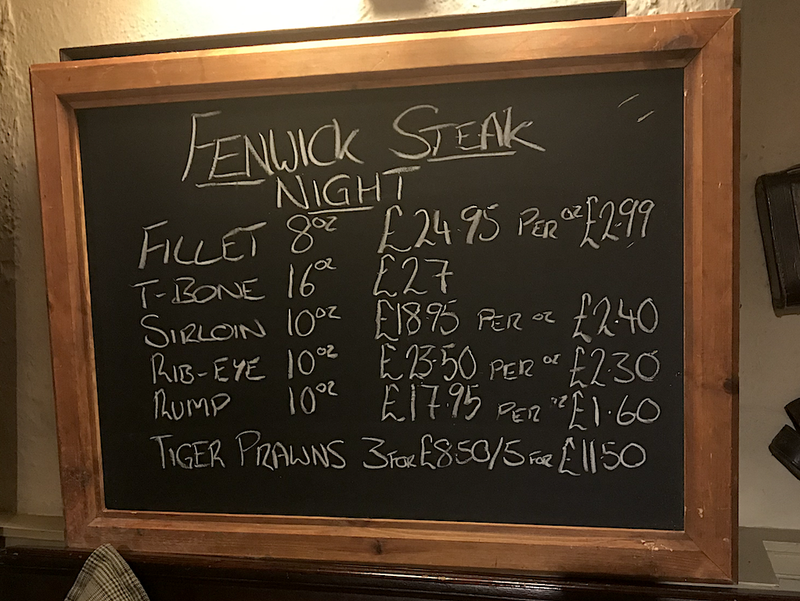 FENWICK STEAK
NIGHT
FILLET 8oz £24.95 PER oz £2.99
T-BONE 16oz £27
SIRLOIN 10oz £18.95 PER oz £2.40
RIB-EYE 10oz £23.50 PER oz £2.30
RUMP 10oz £17.95 PER oz £1.60
TIGER PRAWNS 3 FOR £8.50/5 FOR £11.50